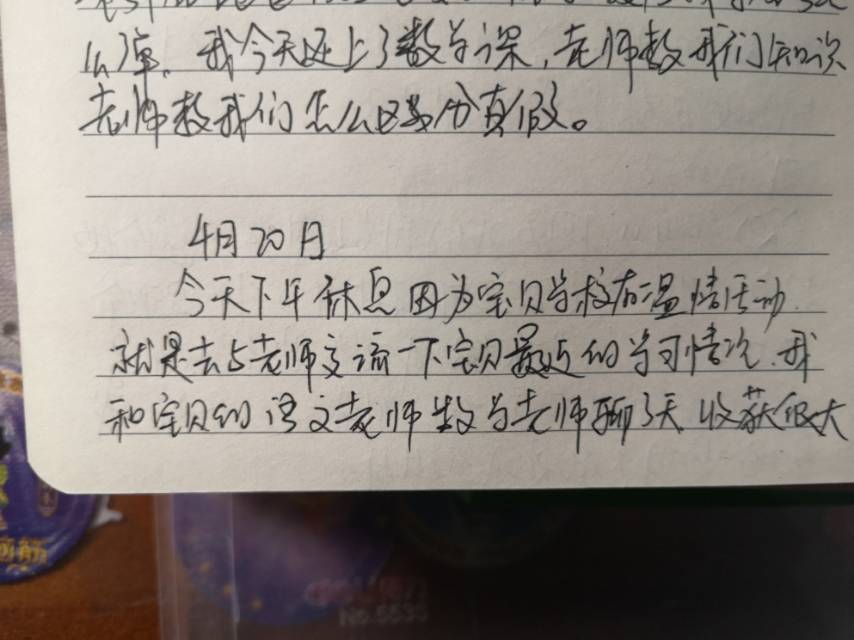 么漂，我今天还上了数学课，老师教我们知识
老师教我们怎么区分真假。
4月20日
今天下午休息因为宝贝学校有温情活动
就是去与老师交流一下宝贝最近的学习情况，我
和宝贝的语文老师数学老师聊了天 收获很大
No.5535